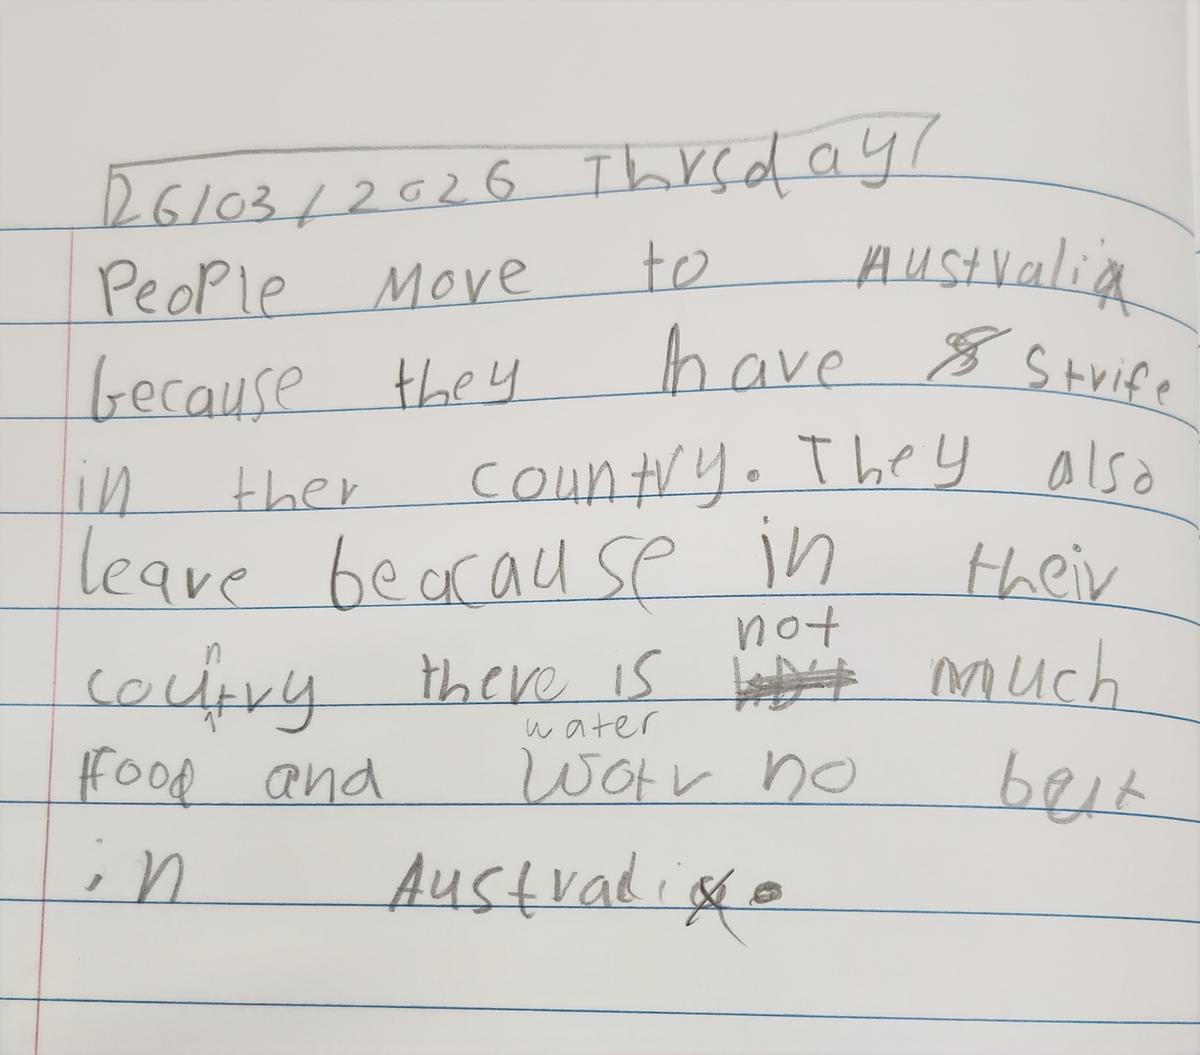 26/03/2026 Thrsday
People Move to Australia
because they have strife
in ther country. They also
leave beacause in their
country there is not much
Food and water Wotr no
in Australia.